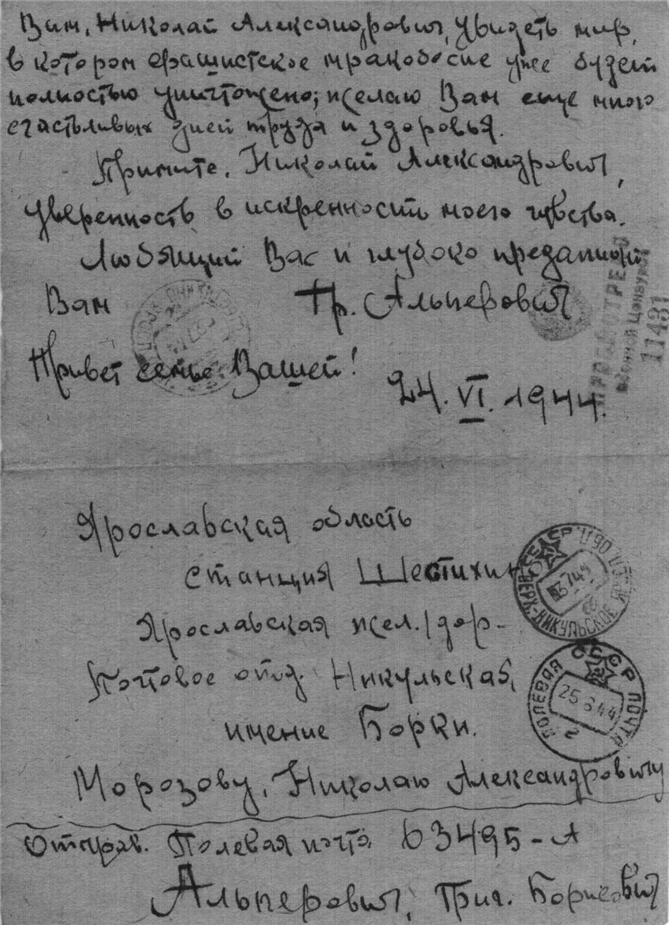 Вам, Николай Александрович, увидеть мир,
в котором фашистское мракобесие уже будет
полностью уничтожено; желаю Вам еще много
счастливых дней труда и здоровья.
Примите, Николай Александрович,
уверенность в искренность моего чувства.
Любящий Вас и глубоко преданный
Вам Гр. Альперович
Привет семье Вашей!
24. VI. 1944.
ПРОСМОТРЕНО
Военной Цензурой
11431
Ярославская область
станция Шестихин
Ярославская жел./дор-
Почтовое отд. Никульская,
имение Борки.
Морозову, Николаю Александровичу
Отправ. Полевая почта 63495-А
Альперович, Григ. Борисович
СССР
ВЕРХ-НИКУЛЬСКОЕ
ПОЛЕВАЯ ПОЧТА
СССР
25 6 44
2